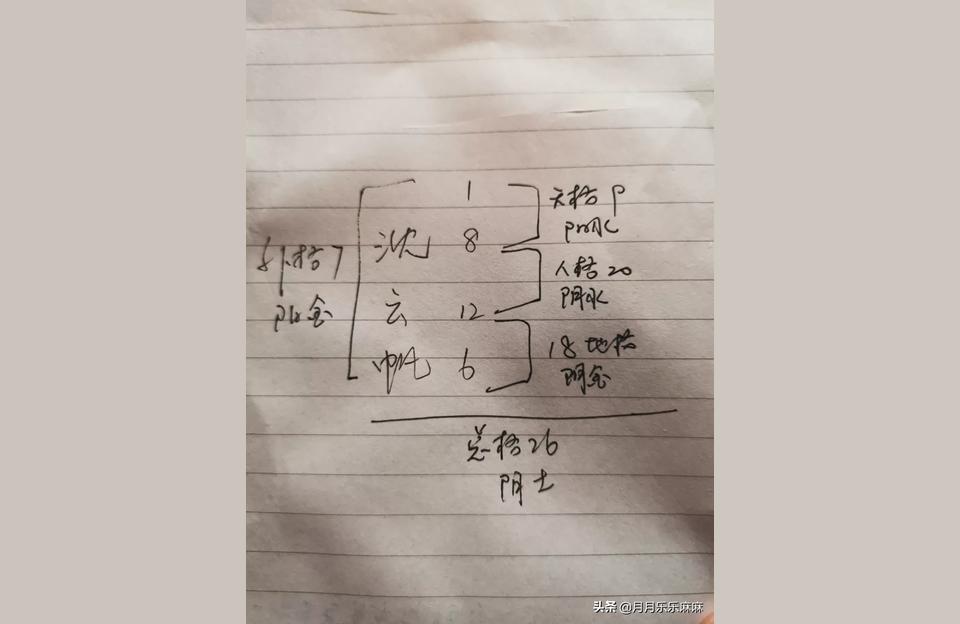 1
天格9
阳水
沈 8
外格7
阳金
人格20
阴水
云 12
18地格
阴金
帆 6
总格26
阴土
头条 @月月乐乐麻麻